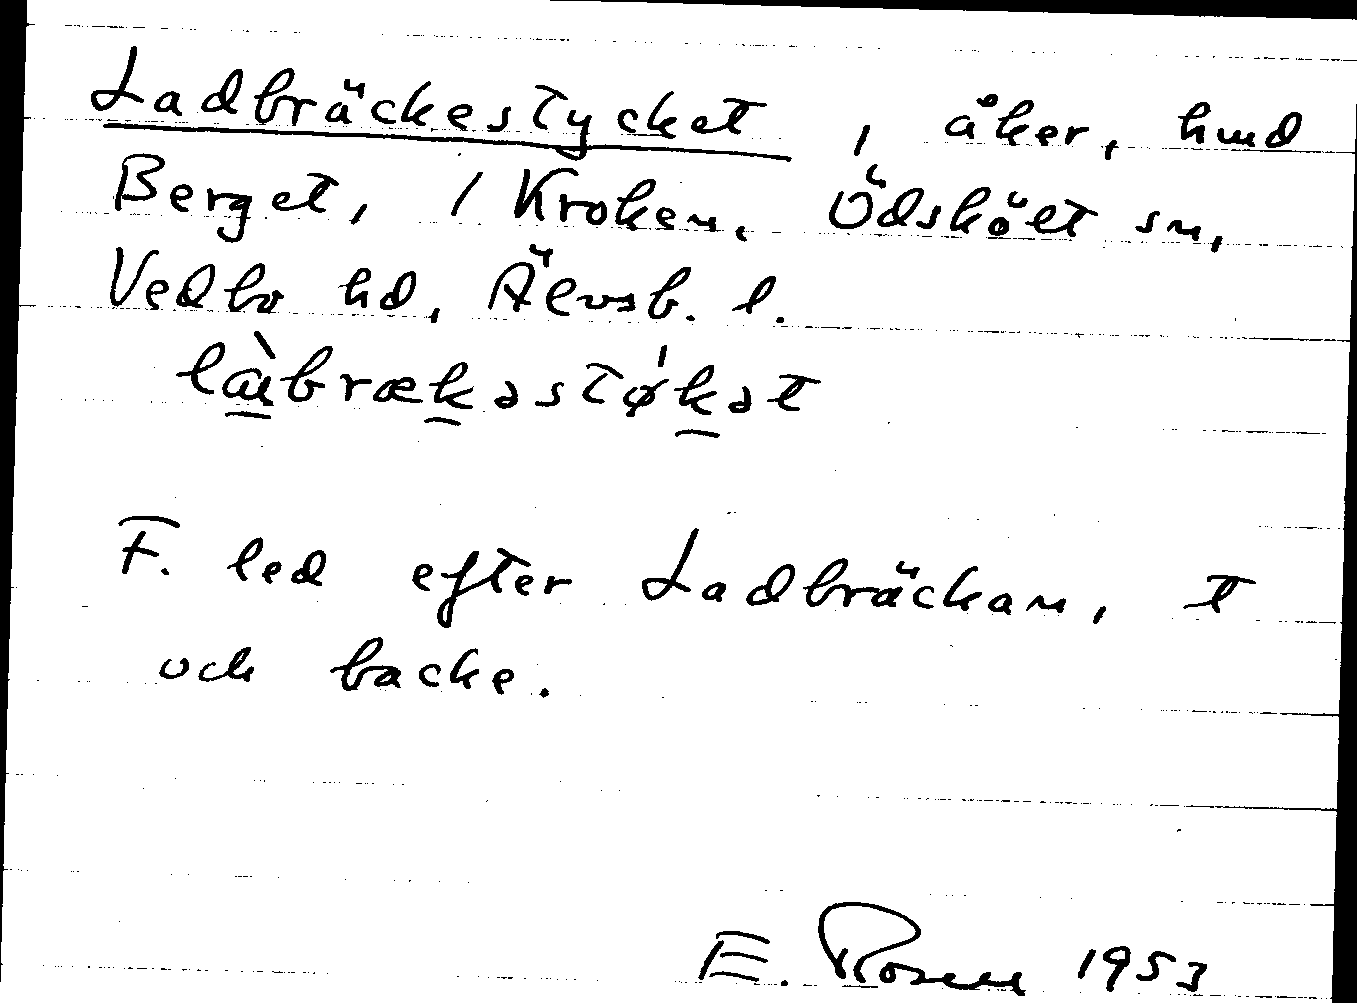 Ladbräckestycket, åker, hmd
Berget, 1 Kroken, Ödskölt sn,
Vedbo hd, Älvsb. l.
làbrækəstǿkət
F. led efter Ladbräckan, t
och backe.
E. Rosen 1953